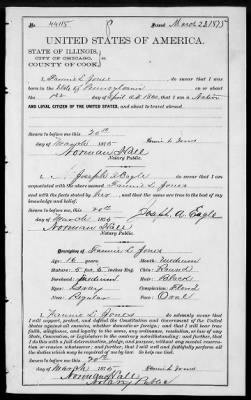 No. 44115 Issued March 23 1875
UNITED STATES OF AMERICA.
STATE OF ILLINOIS,
CITY OF CHICAGO, ss
COUNTY OF COOK.
I, Fannie L. Jones do swear that I was
born in the State of Pennsylvania on or about the
1st day of April A.D. 1860, that I am a Native
AND LOYAL CITIZEN OF THE UNITED STATES, and about to travel abroad.
Sworn to before me this 20th
day of March 1875 Fannie L. Jones
Norman Hall
Notary Public.
I, Joseph A. Eagle do swear that I am
acquainted with the above named Fannie L. Jones
and with the facts stated by her and that the same are true to the best of my knowledge
and belief.
Sworn to before me this 20th
day of March 1875 Joseph A. Eagle
Norman Hall
Notary Public.
Description of Fannie L. Jones
Age: 16 years Mouth: medium
Stature: 5 feet, 5 inches Eng. Chin: Round
Forehead: medium Hair: Black
Eyes: Gray Complexion: Blond
Nose: Regular Face: Oval
I, Fannie L. Jones do solemnly swear that
I will support, protect, and defend the Constitution and Government of the United
States against all enemies, whether domestic or foreign; and that I will bear true
faith, allegiance, and loyalty to the same, any ordinance, resolution, or law of any
State, Convention, or Legislature to the contrary notwithstanding; and further, that
I do this with a full determination, pledge, and purpose, without any mental reservation
or evasion whatsoever; and further, that I will well and faithfully perform all
the duties which may be required of me by law. So help me God.
Sworn to before me this 20th
day of March 1875 Fannie L. Jones
Norman Hall
Notary Public